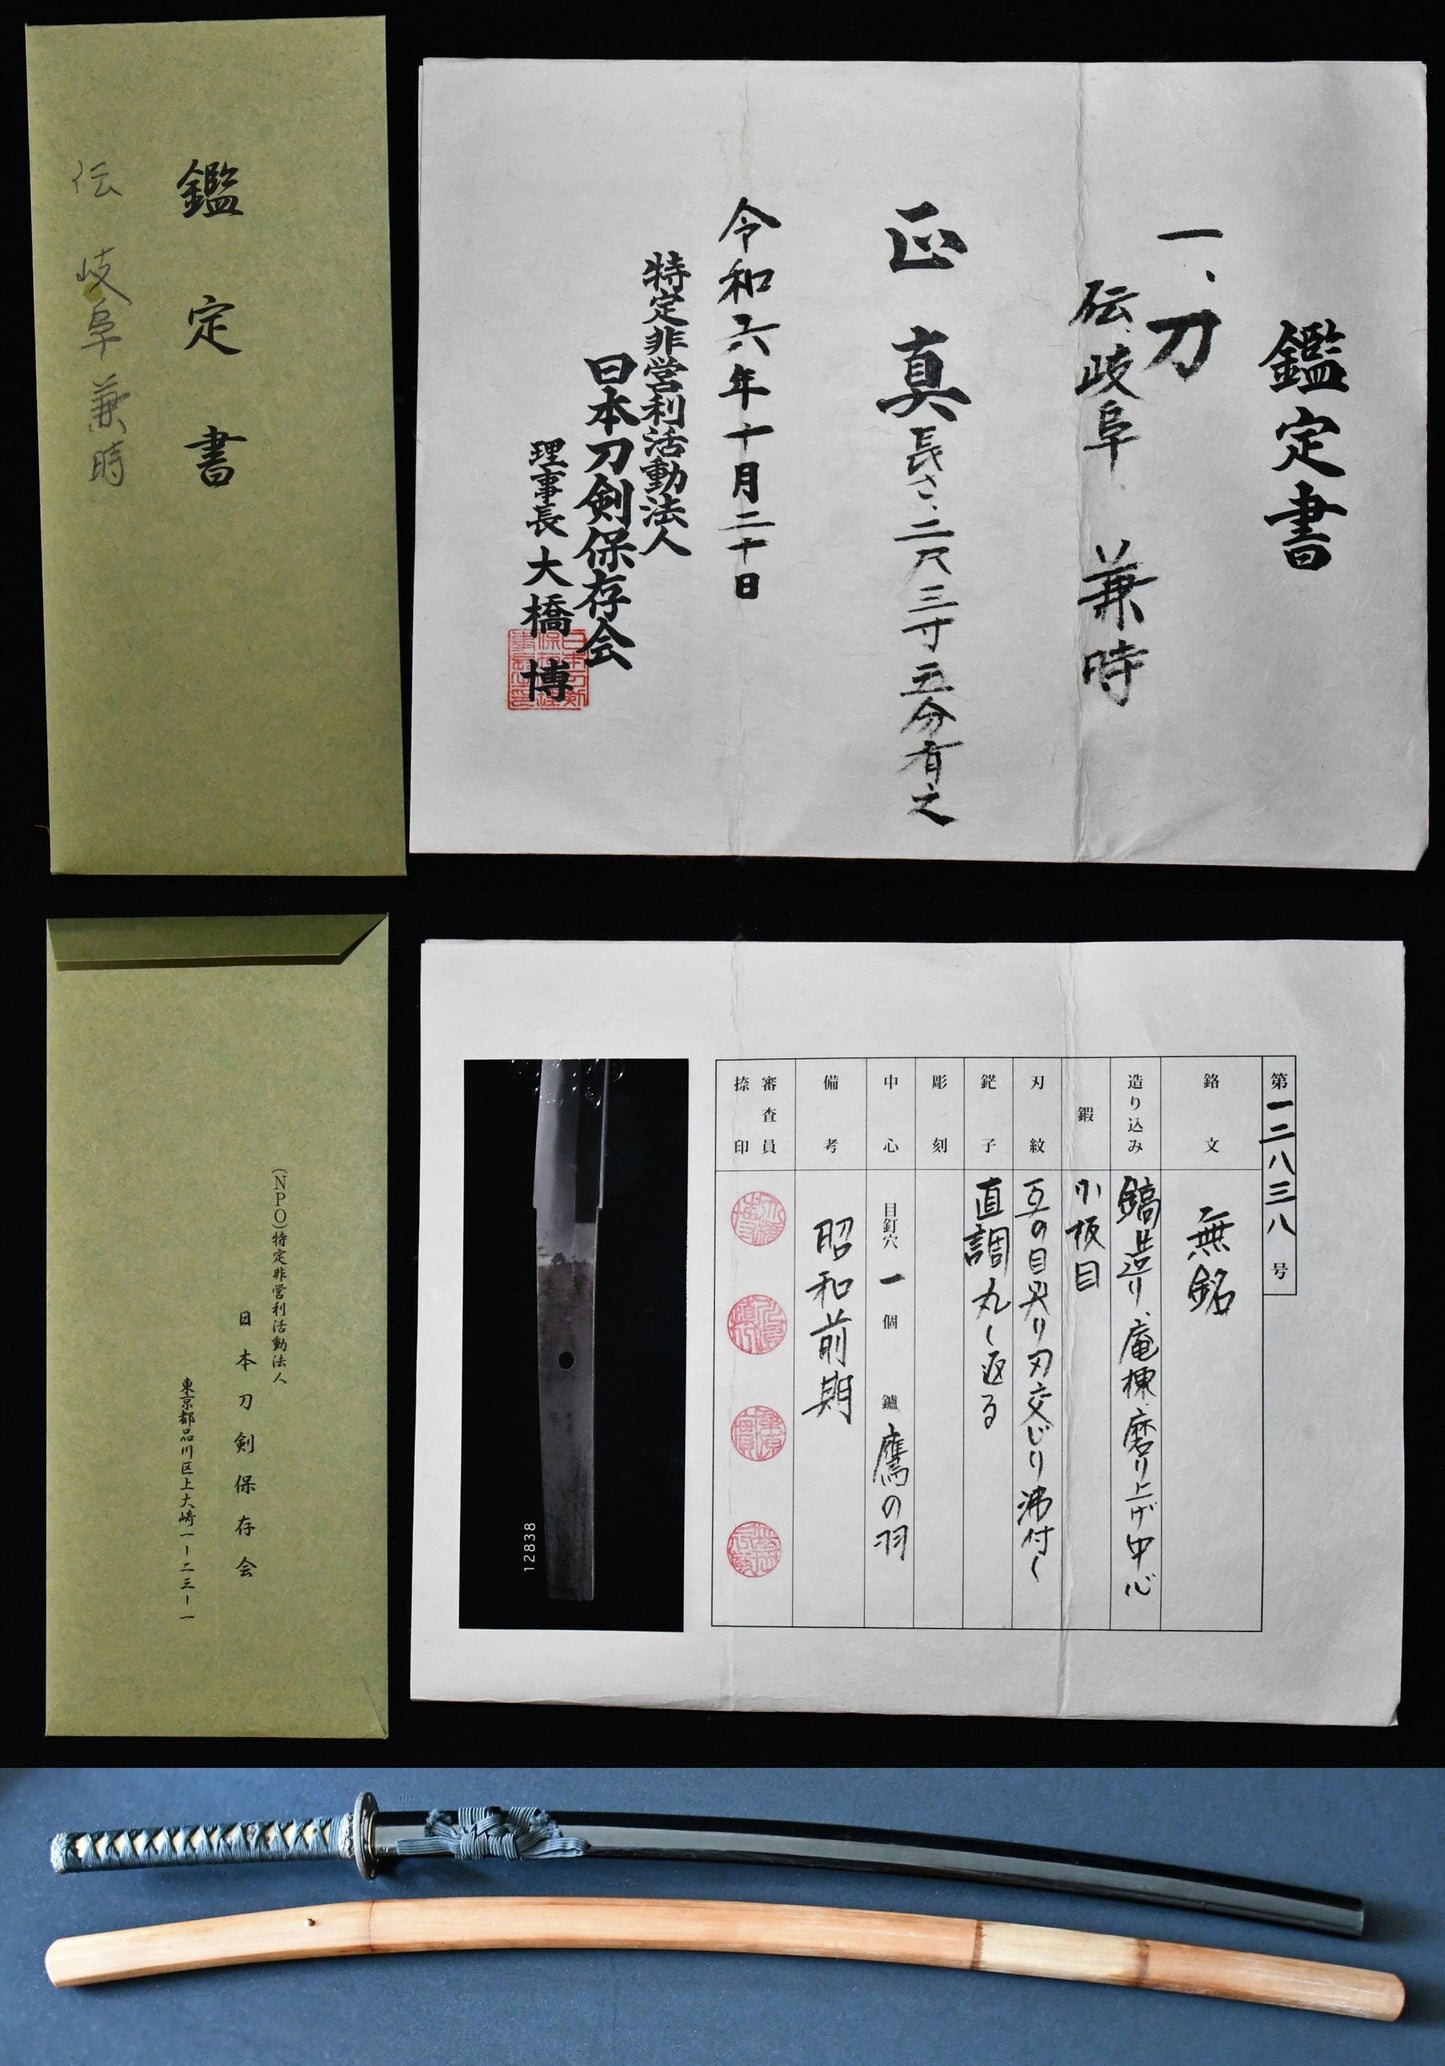 鑑定書
伝 岐阜 兼時
鑑定書
一、刀
伝 岐阜 兼時
正真
長さ、二尺三寸五分有之
令和六年十月二十日
特定非営利活動法人
日本刀剣保存会
理事長 大橋 博
(NPO)特定非営利活動法人
日本刀剣保存会
東京都品川区上大崎一ー二三ー一
第一二八三八号
銘文 無銘
造り込み 鎬造り、庵棟、磨り上げ中心
鍜 小板目
刃紋 互の目尖り刃交じり沸付く
鋩子 直調丸く返る
彫刻
中心 目釘穴 一 個 鑢 鷹の羽
備考 昭和前期
審査員
捺印
12838